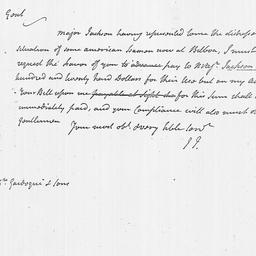 Gentl
Major Jackson having represented to me the distress
situation of some american Seamen now at Bilboa, I must
request the honor of you to advance pay to Major Jackson
hundred and twenty hard Dollars for their Use but on my
Your Bill upon me payable at sight for this Sum shall
immediately paid, and your Compliance will also much
Gentlemen
Your most obt. & very hble Servt
J J
Gardoqui & Sons